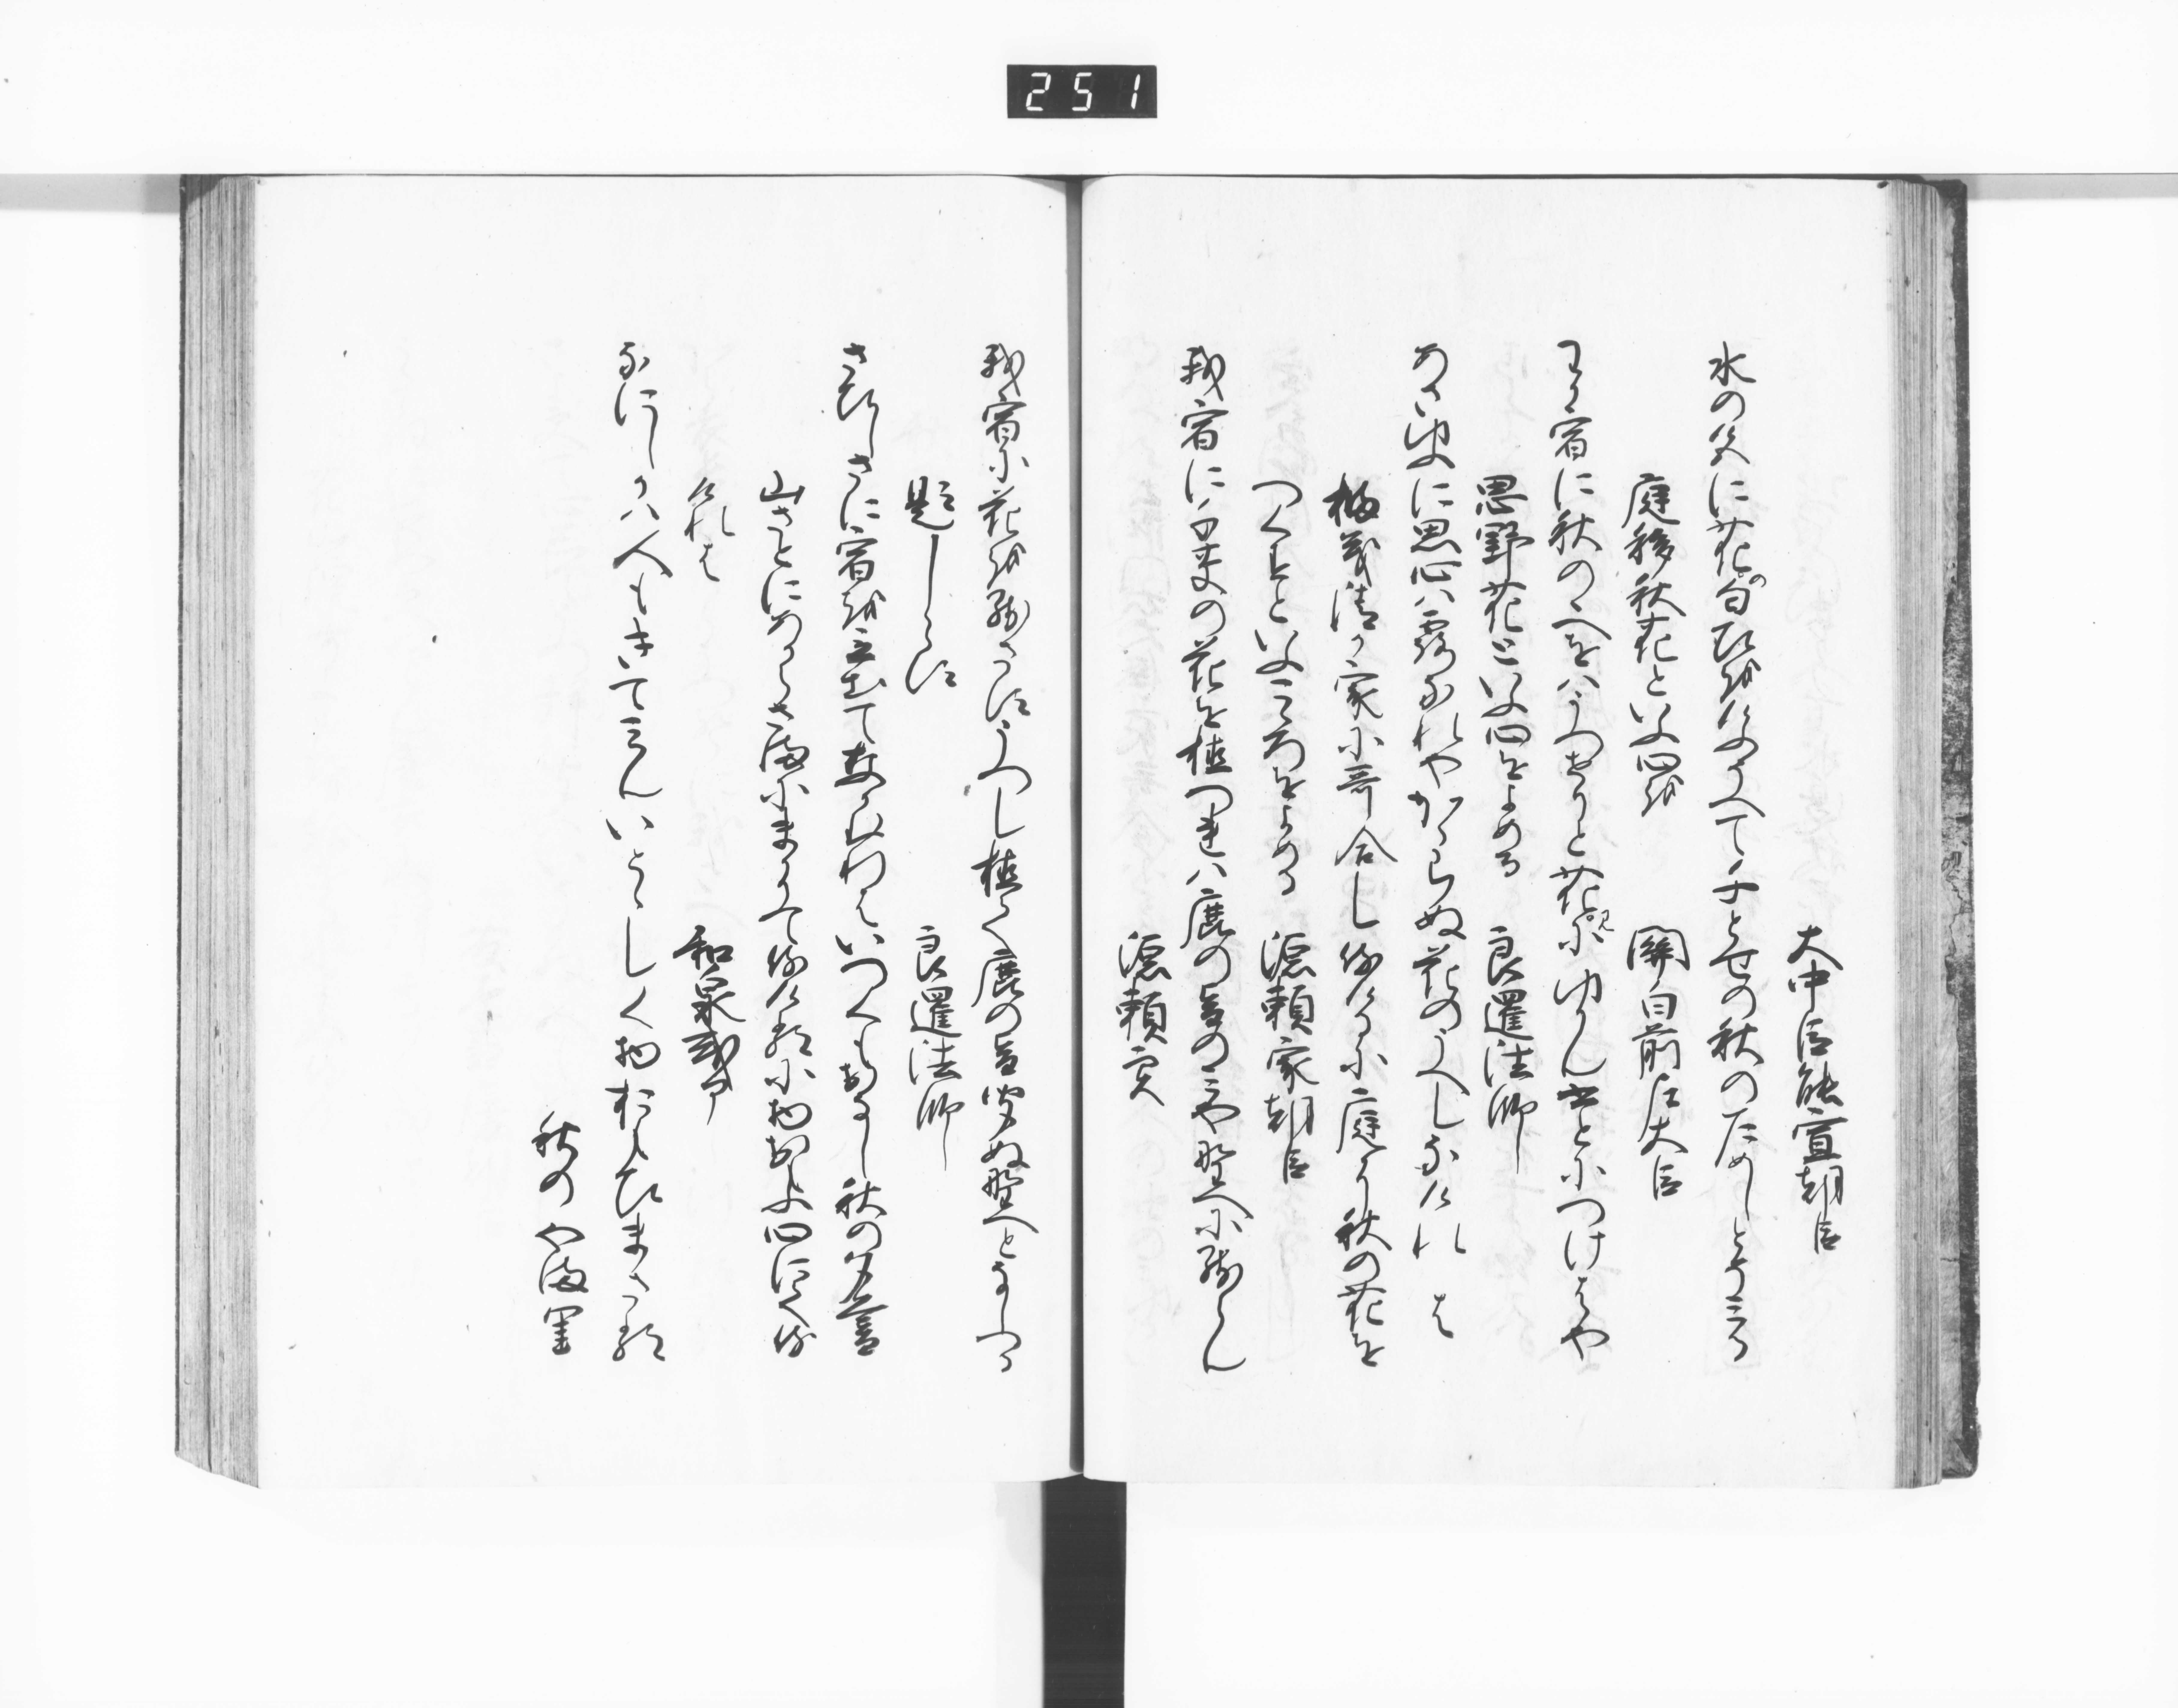 251
大中臣能宣朝臣
水の色に花の匂ひをけふそへて千とせの秋のためしとそみる
庭移秋花といふ心を
關白前左大臣
わか宿に秋のゝへをはうつせりと花見にゆかん人につけはや
思野花といふ心をよめる
良暹法師
あさゆふに思心は露なれやかゝらぬ花のうへしなけれは
橘義清か家に哥合し侍けるに庭に秋の花を
つくすといふこゝろをよめる
源頼家朝臣
我宿に千草の花を植つれは鹿の音のみや野へに残らん
源頼実
我宿に花を残さすうつし植て鹿の音きかぬ野へとなしつる
題しらす
良暹法師
さひしさに宿を立出てなかむれはいつくもおなし秋の夕暮
山さとにあからさまにまかりて侍けるに物おもふ心に侍
けれは
和泉式部
なにしかは人もきてみんいとゝしく物おもひまさる
秋のやま里